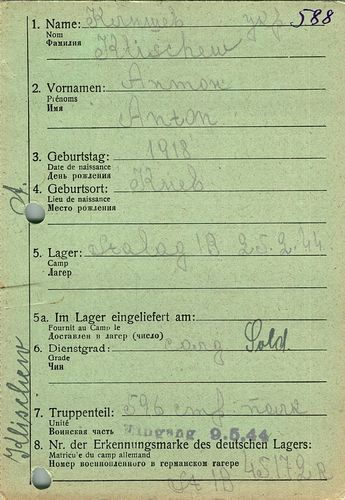 588
1. Name: Климшев
Nom
Фамилия
Klischew
2. Vornamen: Антон
Prénoms
Имя
Anton
3. Geburtstag: 1918
Date de naissance
День рождения
4. Geburtsort: Киев
Lieu de naissance
Место рождения
5. Lager: Stalag IB 25.2.44.
Camp
Лагерь
5a. Im Lager eingeliefert am:
Fournit au Camp le
Доставлен в лагерь (число)
6. Dienstgrad: Sold.
Grade
Чин
7. Truppenteil: 596 стр. полк
Unité
Воинская часть
Eingang 9.5.44
8. Nr. der Erkennungsmarke des deutschen Lagers:
Matricule du camp allemand
Номер военнопленного в германском лагере
St IB 45172
Klischew A.